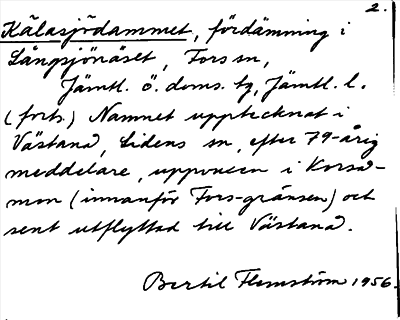 2.
Kälasjödammet, fördämning i
Långsjönäset, Fors sn,
Jämtl. ö. doms. tg, Jämtl. l.
(forts.) Namnet upptecknat i
Västanå, Lidens sn, efter 79-årig
meddelare, uppvuxen i Korså-
mon (innanför Fors-gränsen) och
sent utflyttad till Västanå.
Bertil Flemström 1956.